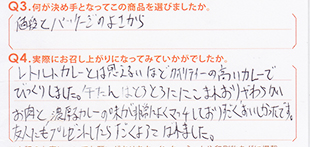 Q3.何が決め手となってこの商品を選びましたか。
価段とパッケージのよさから
Q4.実際にお召し上がりになってみていかがでしたか。
レトルトカレーとは思えないほどクオリティーの高いカレーで
びっくりしました。牛たんはとろとろににこまれおりやわらかい
お肉と、濃厚カレーの味が非常によくマッチしておりすごくおいしかったです。
友人にもプレゼントしたらすごくよろこばれました。